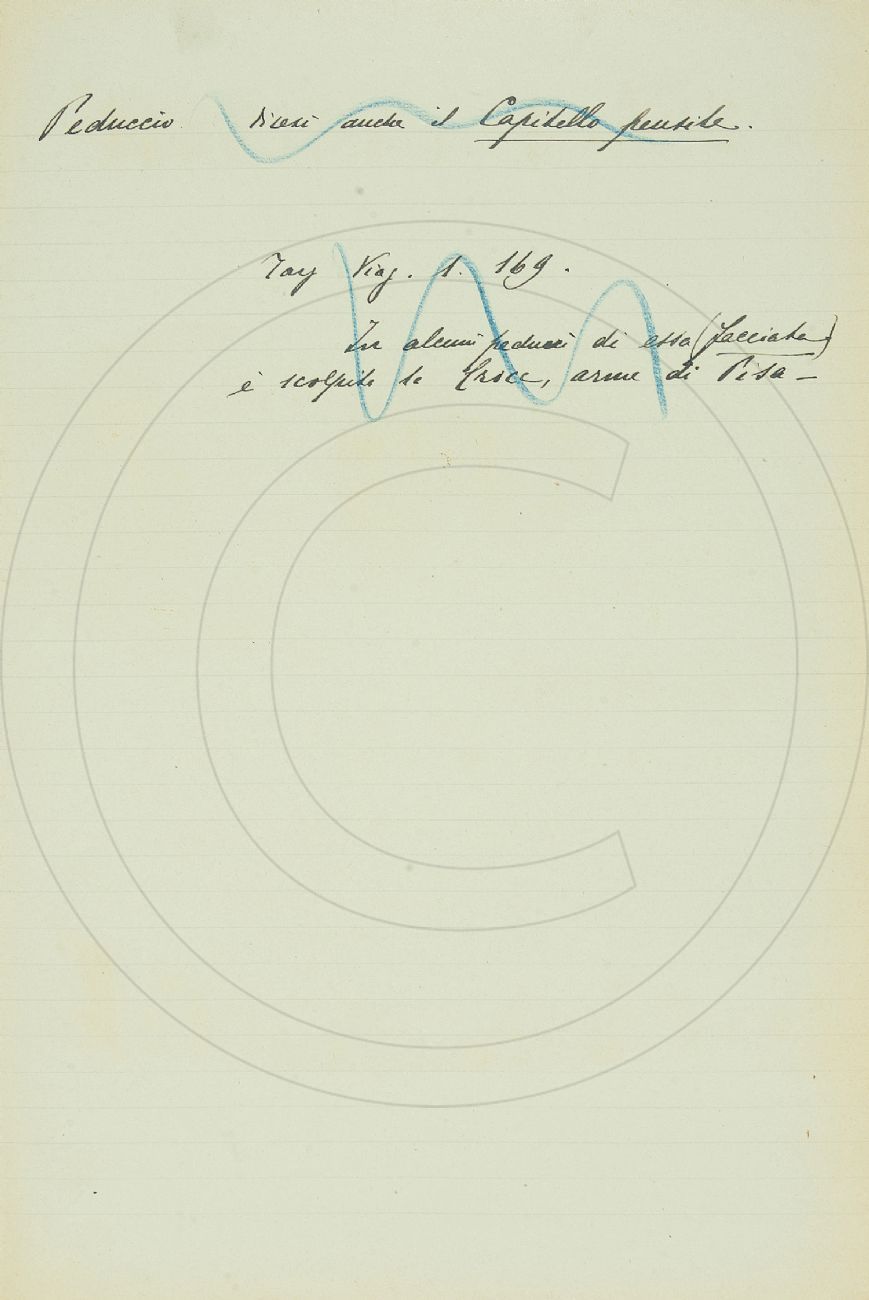 Peduccio dicesi anche il Capitello pensile.
Targ Viag. 1. 169.
In alcuni peducci di essa (facciata)
è scolpita la Croce, arme di Pisa -